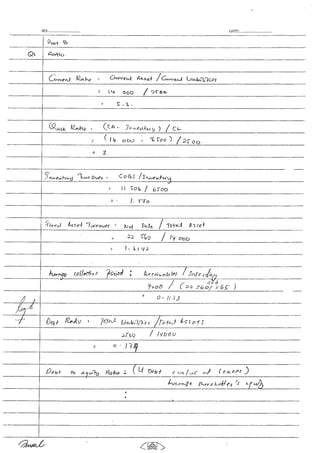 NO:
DATE:
Part B
Q1 Ratio
Current Ratio = Current Asset / Current Liabilities
= 14 000 / 2500
= 5.6
Quick Ratio = (CA - Inventory) / CL
= (14 000 - 6500) / 2500
= 3
Inventory Turnover = COGS / Inventory
= 11 506 / 6500
= 1.770
Fixed Asset Turnover = Net Sale / Total Asset
= 22 560 / 14 000
= 1.6142
Average collection period = Accountables /
9000 / (22 560/365)
= 0.1123
Debt Ratio = Total Liabilities / Total Assets
2500 / 14000
= 0.179
Debt to equity Ratio = (LT Debt + value of leases)
Average shareholder's equity
=